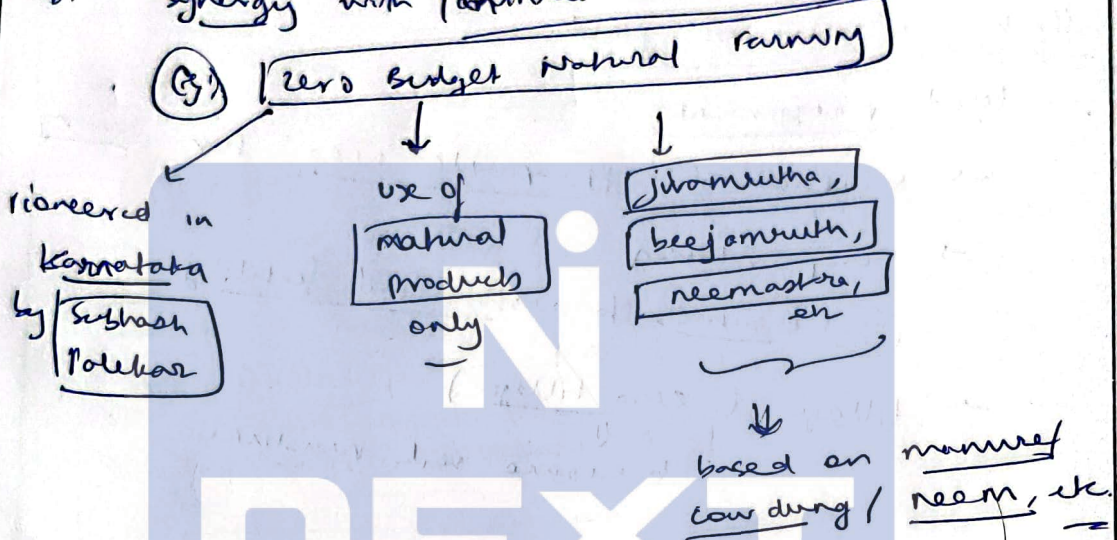 synergy with
Eg:) Zero Budget Natural Farming
Pioneered in
Karnataka
by Subhash
Palekar
use of
natural
products
only
jivamrutha,
beejamruth,
neemastra,
etc
based on manures
cow dung / neem, etc.
Ni
NEXT